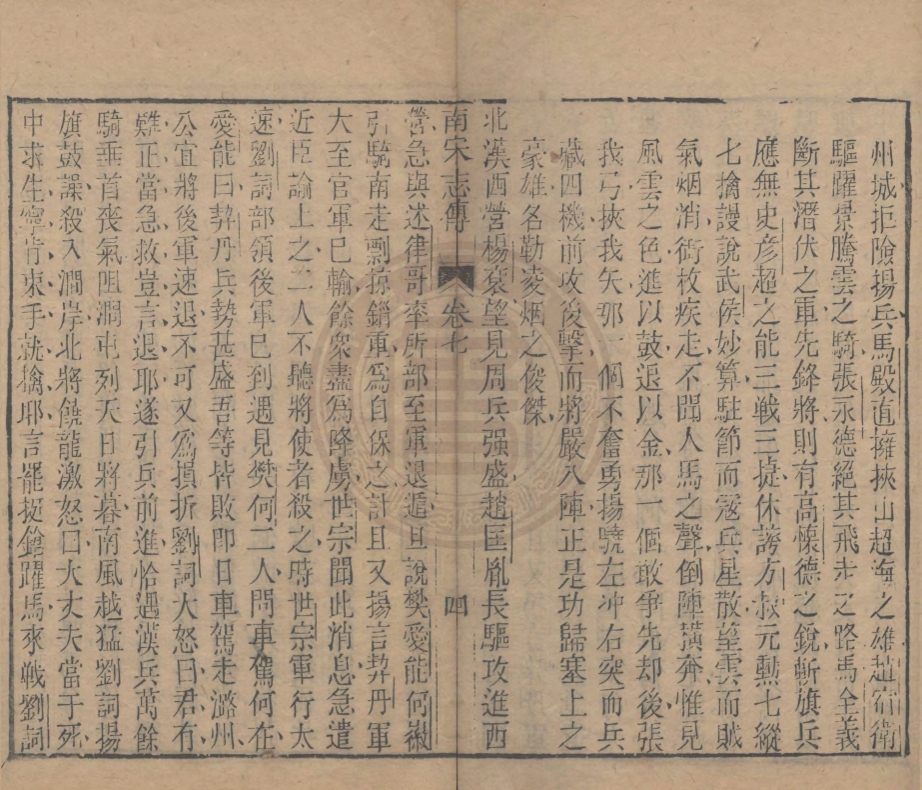 州城拒險揚兵馬殿直擁挾山超海之雄趙宿衛
驅躍景騰雲之騎張永德絕其飛走之路馬全義
斷其潛伏之軍先鋒將則有高懷德之銳斬旗兵
應無史彥超之能三戰三捷休誇方叔元勳七縱
七擒謾說武侯妙算駐節而冦兵星散望雲而賊
氣烟消銜枚疾走不聞人馬之聲倒陣橫奔惟見
風雲之色進以鼓退以金那一個敢爭先却後張
我弓挾我矢那一個不奮勇揚驍左冲右突而兵
藏四機前攻後擊而將嚴入陣正是功歸塞上之
豪雄名勒凌烟之俊傑
北漢西營楊袞望見周兵强盛趙匡胤長驅攻進西
南宋志傳 卷七 四
營急與述律哥率所部至軍退遁且說樊愛能何徽
引騎南走剽掠錙重為自保之計且又揚言契丹軍
大至官軍已輸餘衆盡為降虜世宗聞此消息急遣
近臣諭上之二人不聽將使者殺之時世宗軍行太
速劉詞部領後軍已到遇見樊何二人問車駕何在
愛能曰契丹兵勢甚盛吾等皆敗即日車駕走潞州
公宜將後軍速退不可又為損折劉詞大怒曰君有
難正當急救豈言退耶遂引兵前進恰遇漢兵萬餘
騎垂首喪氣阻澗屯列天日將暮南風越猛劉詞揚
旗鼓譟殺入澗岸北將饒龍激怒曰大丈夫當于死
中求生寧肯束手就擒耶言罷挺鎗躍馬來戰劉詞